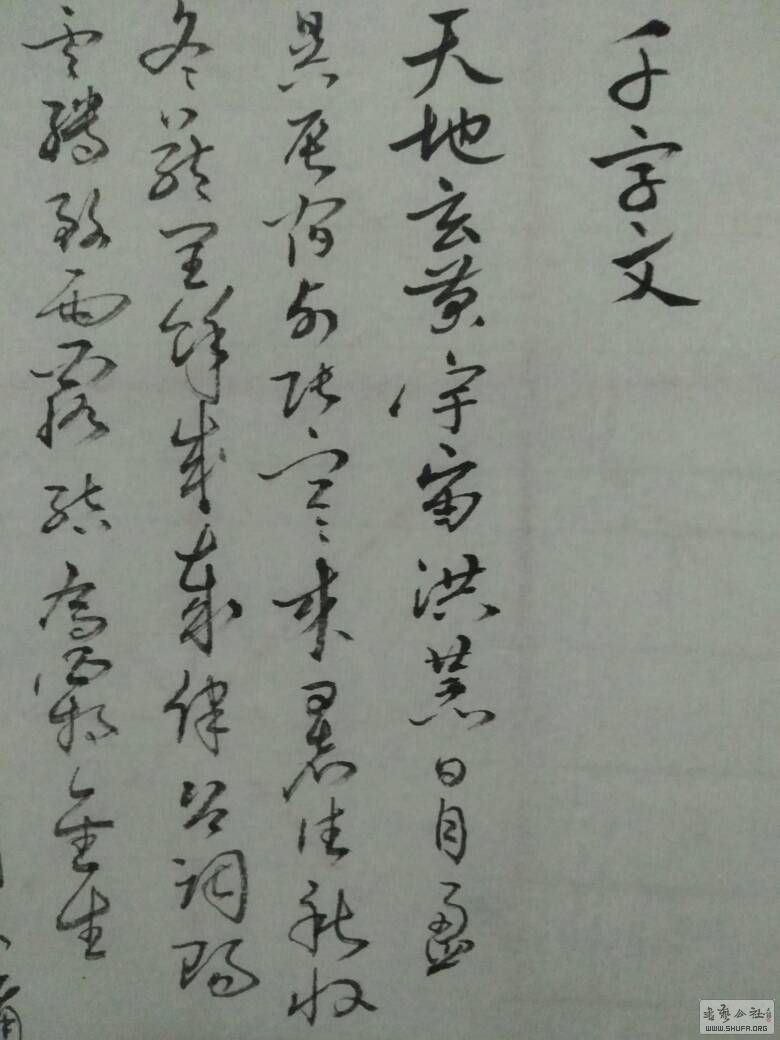 千字文
天地玄黄宇宙洪荒日月盈
昃辰宿列張寒来暑往秋收
冬藏閏餘成歲律吕調陽
雲騰致雨露結為霜金生
書藝公社
WWW.SHUFA.ORG